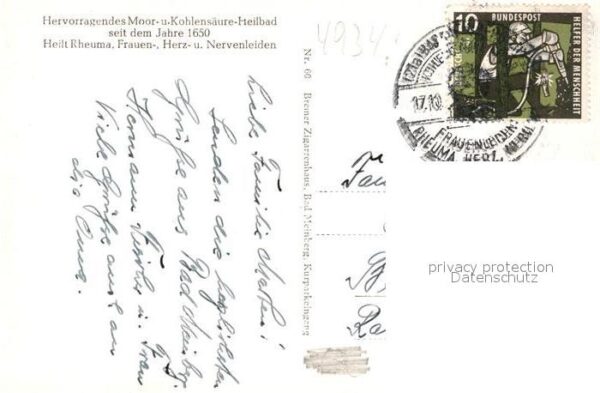 Hervorragendes Moor- u. Kohlensäure-Heilbad
seit dem Jahre 1650
Heilt Rheuma, Frauen-, Herz- u. Nervenleiden
4934
10
BUNDESPOST
HELFER DER MENSCHHEIT
17.10
FRAUENLEIDEN
RHEUMA, HERZ, NERV
Liebe Familie
Senden die herzlichsten
Grüße aus Bad Meinberg.
Hermann u. Frau
Viele Grüße auch an
die Oma.
Nr. 66 Bremer Zigarrenhaus, Bad Meinberg, Kurparkeingang
Fam
privacy protection
Datenschutz